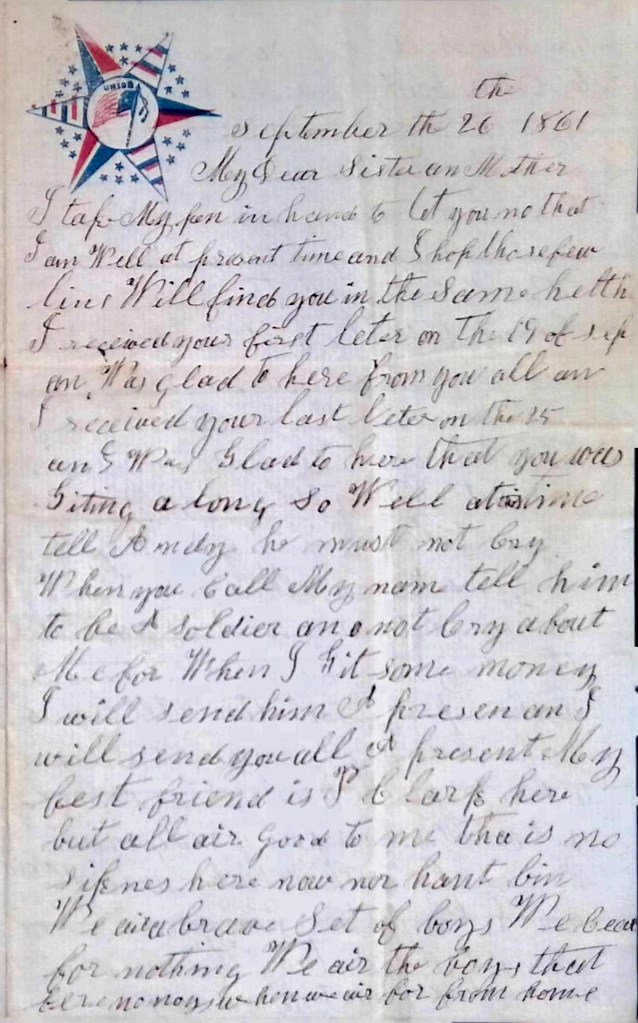 UNION
th
September th 26 1861
My Dear Sister an Mother
I take My pen in hand to let you no that
I am Well at present time and I hop thos few
lins Will find you in the Same helth
I received your first leter on the 19 of sep
an Was glad to here from you all an
I received your last leter on the 25
an I Was Glad to here that you was
Giting a long So Well at time
tell Andy he must not Cry
When you Call My nam tell him
to be A soldier an not Cry about
Me for When I Git some money
I will send him A presen an I
will send you all A present My
best friend is Clark here
but all air good to me tha is no
siknes here now nor hant bin
We air a brave Set of boys We
for nothing We air the boys that
no when we air for from home